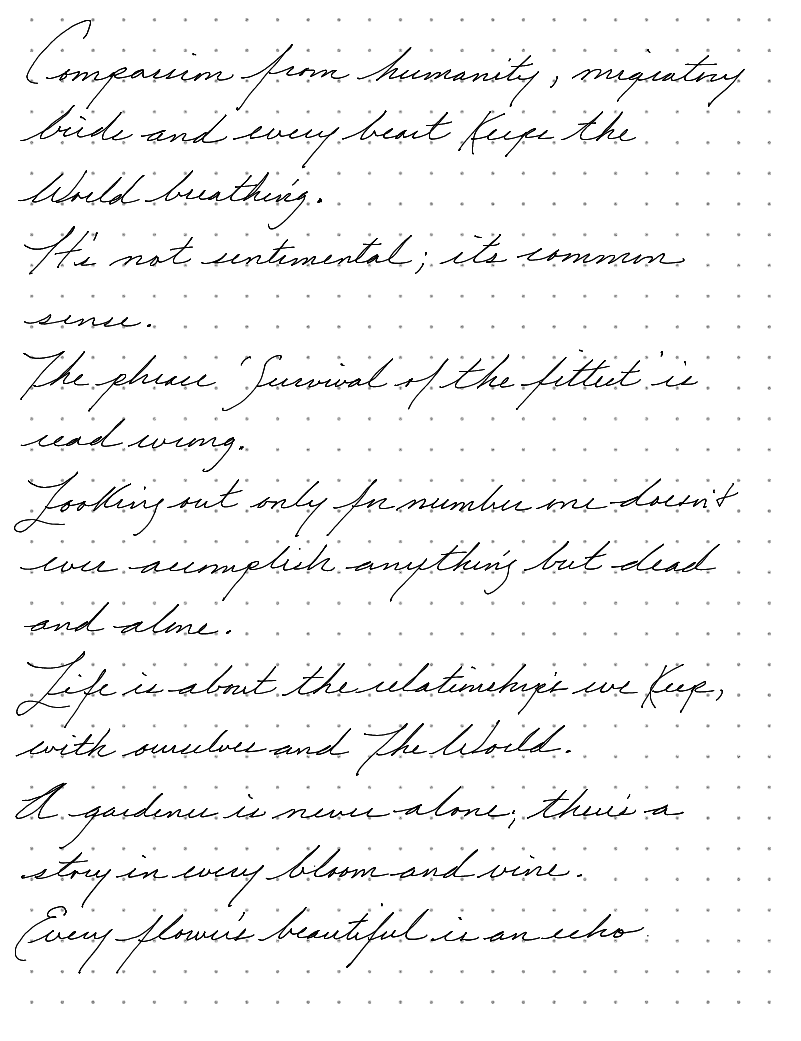 Compassion from humanity, migratory
birds and every beast Keeps the
World breathing.
It's not sentimental; its common
sense.
The phrase 'Survival of the fittest' is
read wrong.
Looking out only for number one doesn't
ever accomplish anything but dead
and alone.
Life is about the relationships we Keep,
with ourselves and The World.
A gardener is never alone; there's a
story in every bloom and vine.
Every flower's beautiful is an echo